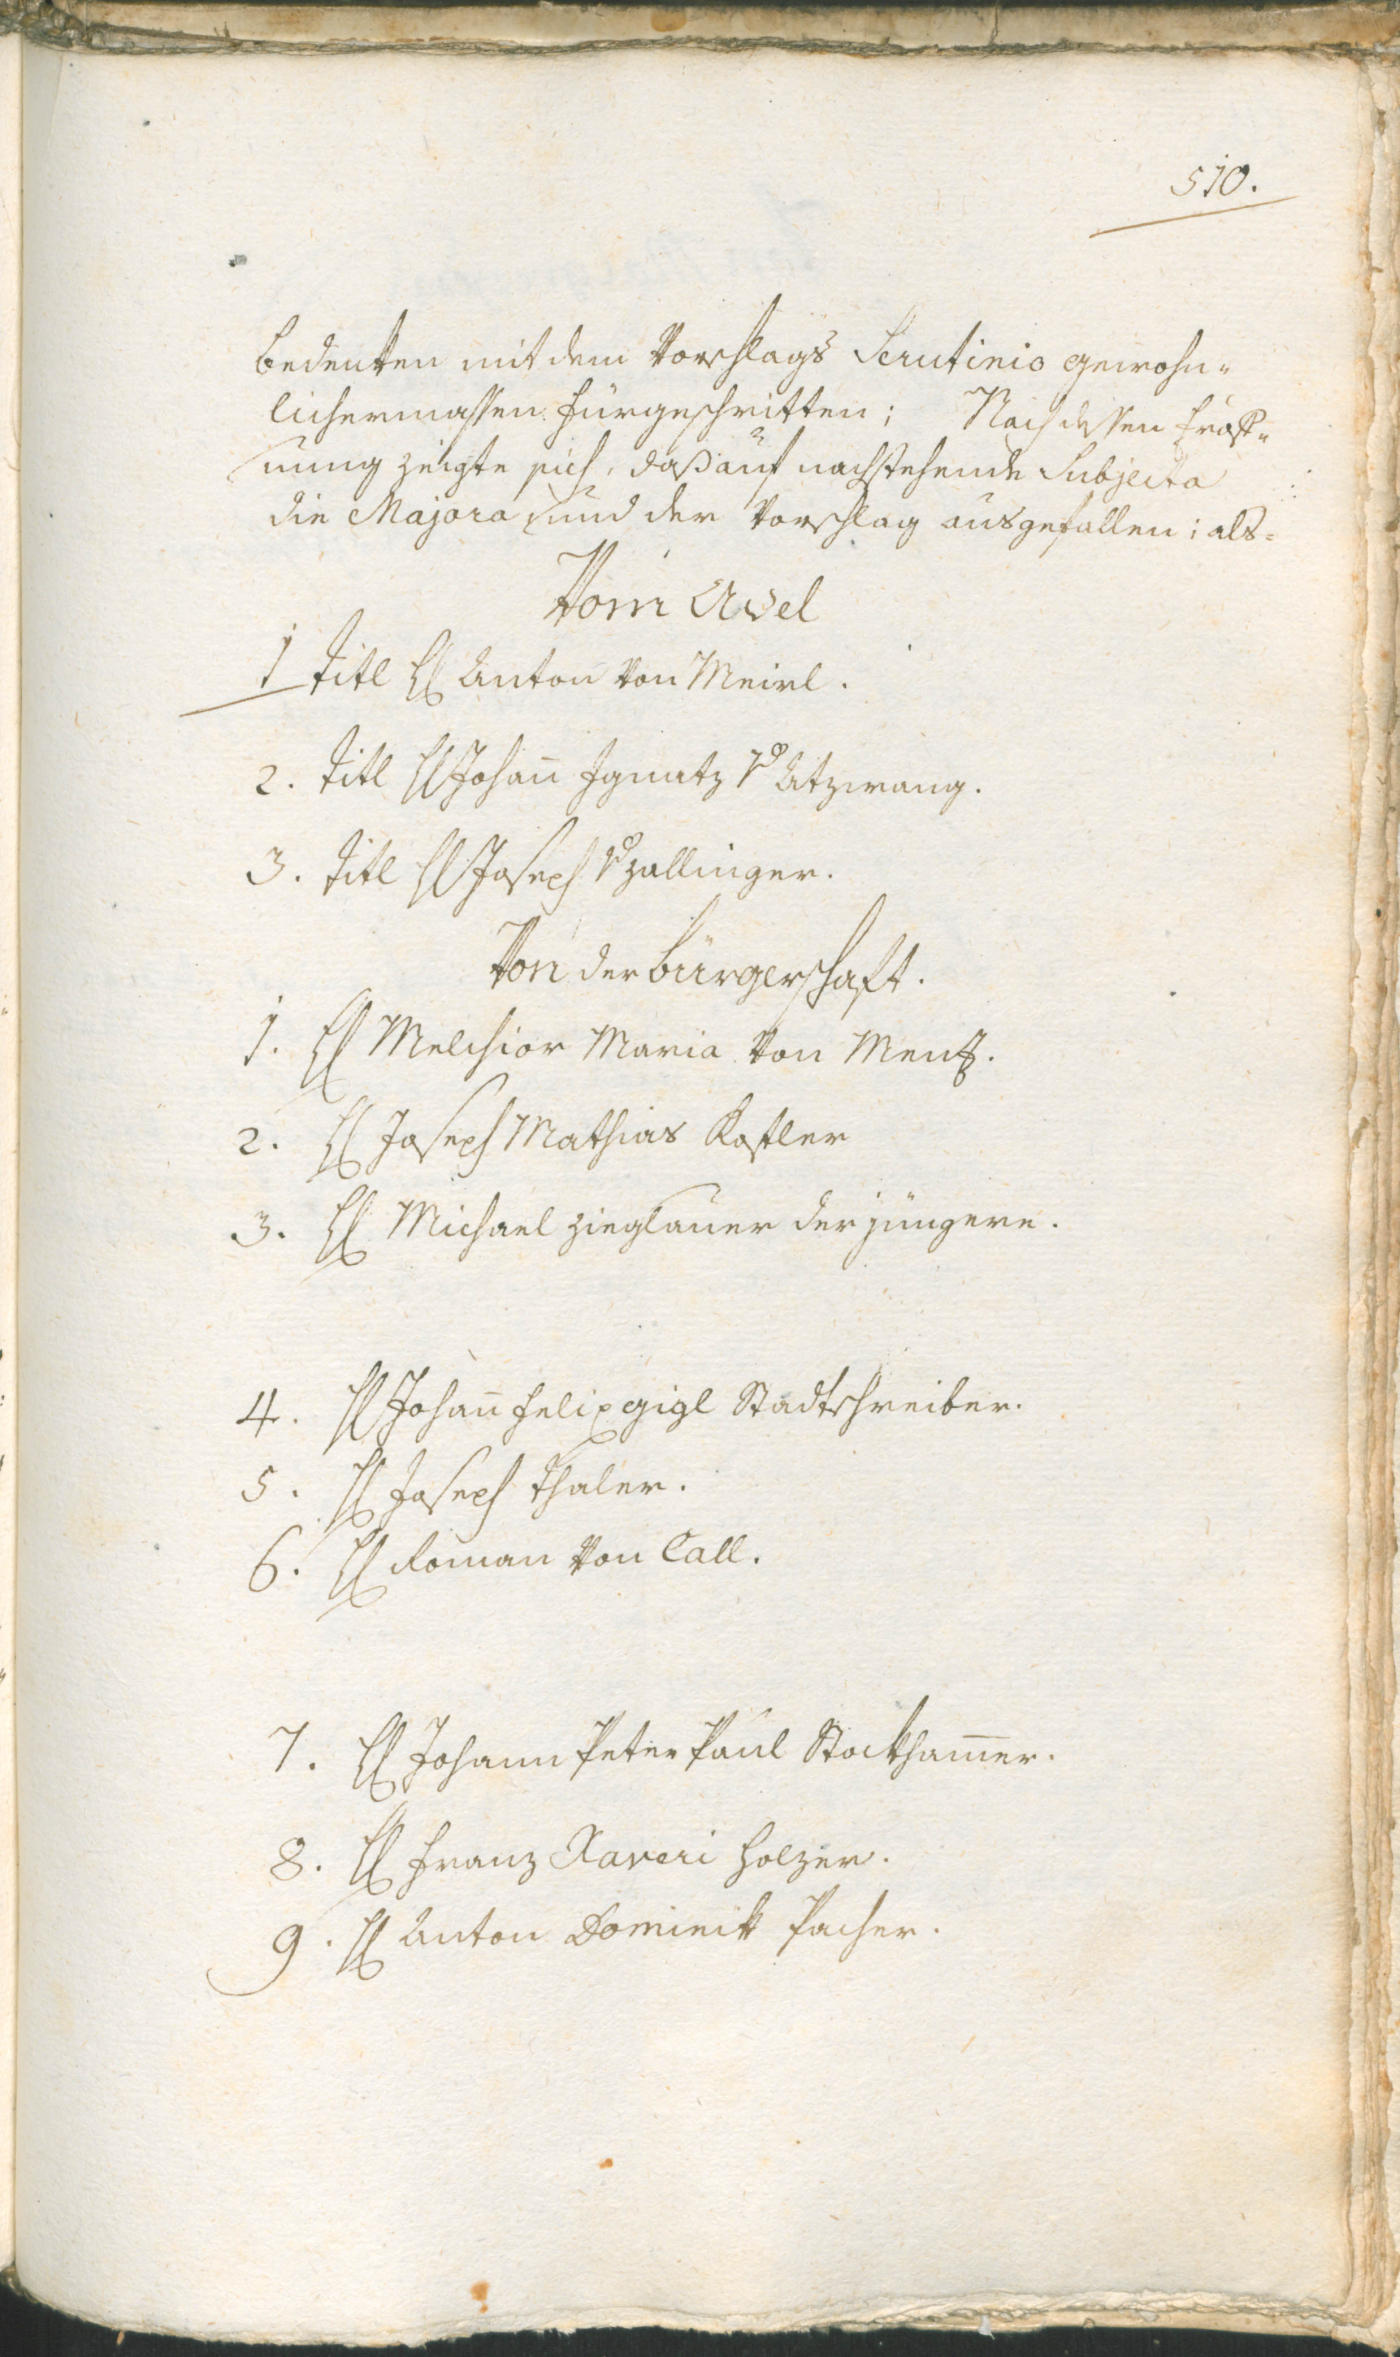 510.
bedeuten mit dem Vorschlags Scrutinio gewohn„
lichermassen fürgeschritten; Nach dessen Eröff„
nung zeigte sich, daß auf nachstehende Subjecta
die Majora und der Vorschlag ausgefallen: als:
Vom Adel
1 Titl H Anton von Meirl.
2. Titl H Johañ Ignatz V Atzwang.
3. Titl H Joseph V Zallinger.
Von der bürgerschaft.
1. H Melchior Maria von Menz.
2. H Joseph Mathias Kostler
3. H Michael Zieglauer der jüngere.
4. H Johañ Felix Gigl Stadtschreiber.
5. H Joseph Thaler.
6. H Roman von Call.
7. H Johann Peter Paul Stockham̄er.
8. H Franz Xaveri Holzer.
9. H Anton Dominik Pacher.